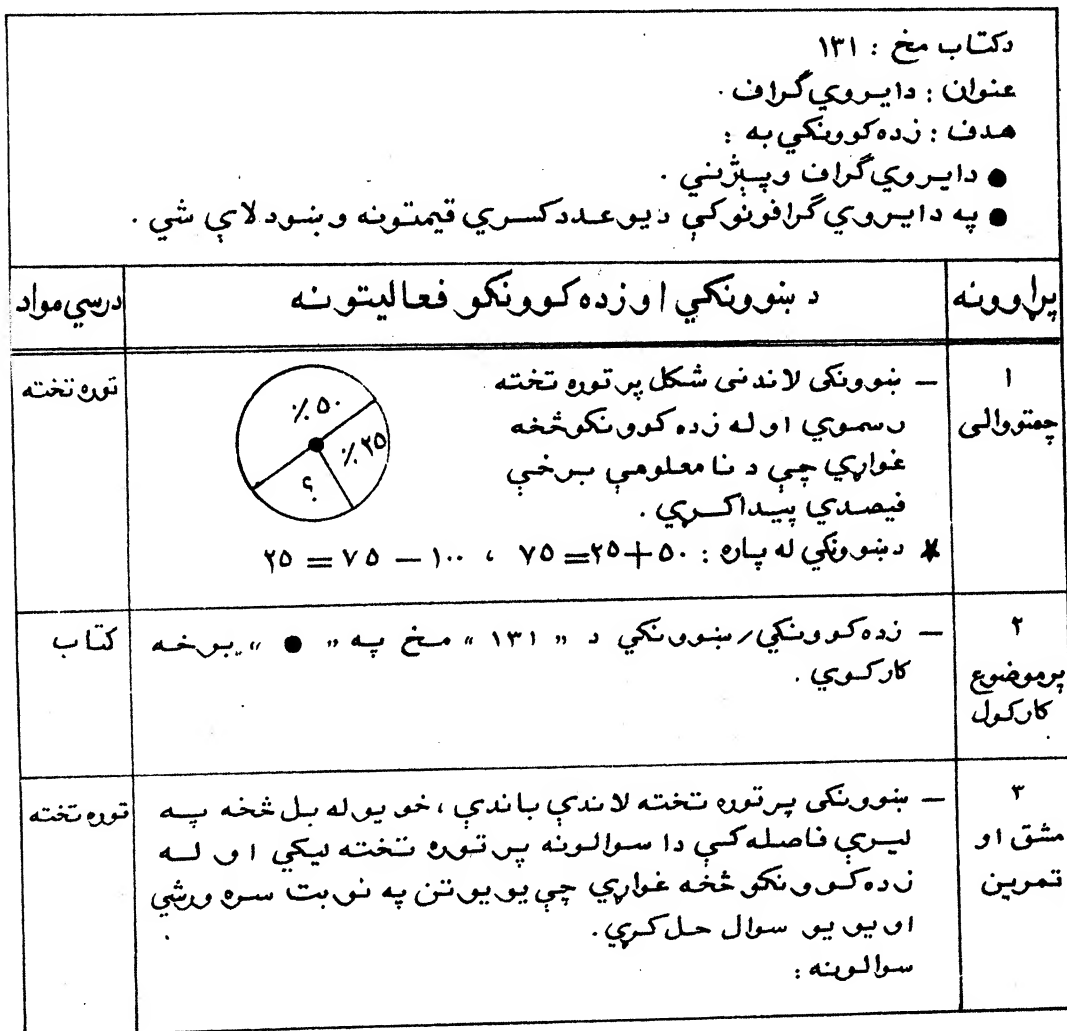 دکتاب مخ : ۱۳۱
عنوان : دایروي گراف .
هدف : زده کوونکي به :
● دایروي گراف وپېژني .
● په دایروي گرافونو کې دیو عدد کسري قیمتونه وښودلای شي .
پړاوونه
د ښوونکي او زده کوونکو فعالیتونه
درسي مواد
۱
چمتووالی
— ښوونکی لاندنی شکل پر توره تخته
رسموي او له زده کوونکو څخه
غواړي چې د نامعلومې برخې
فیصدي پیدا کړي .
* د ښوونکي له پاره : ۵۰+۲۵=۷۵ ، ۱۰۰ — ۷۵ = ۲۵
٪۵۰
٪۲۵
؟
توره تخته
۲
پر موضوع
کار کول
— زده کوونکي/ښوونکي د « ۱۳۱ » مخ په « ● » برخه
کار کوي .
کتاب
۳
مشق او
تمرین
— ښوونکی پر توره تخته لاندې باندې ، خو یو له بل څخه په
لیرې فاصله کې دا سوالونه پر توره تخته لیکي او له
زده کوونکو څخه غواړي چې یو یو تن په نوبت سره ورشي
او یو یو سوال حل کړي .
سوالونه :
توره تخته